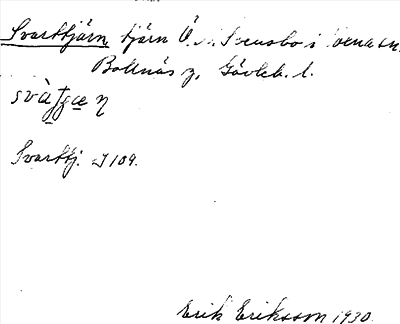 Svarttjärn, tjärn Ö. Svensbo i
Bollnäs s., Gävleb. l.
Svarttj. J 109.
Erik Eriksson 1930.